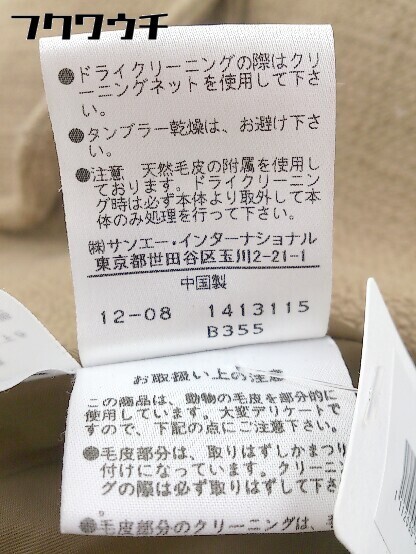 フクワウチ
●ドライクリーニングの際はクリ
ーニングネットを使用して下さ
い。
●タンブラー乾燥は、お避け下さ
い。
●注意 天然毛皮の附属を使用し
ております。ドライクリーニン
グ時は必ず本体より取外して本
体のみ処理を行って下さい。
㈱サンエー・インターナショナル
東京都世田谷区玉川2-21-1
中国製
12-08 1413115
B355
お取扱い上の注意
この商品は、動物の毛皮を部分的に
使用しています。大変デリケートで
すので、下記の点にご注意下さい。
●毛皮部分は、取りはずしかまつり
付けになっています。クリーニ
グの際は必ず取りはずして下さ
●毛皮部分のクリーニングは、